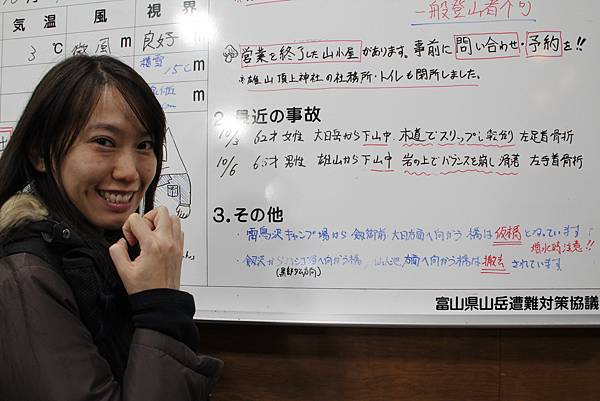 一般登山者
気温 風 視界
3℃ 微風 m 良好 m
積雪 15cm
m
営業を終了した山小屋があります。事前に問い合わせ・予約を!!
※雄山頂上神社の社務所・トイレも閉所しました。
2.最近の事故
10/3 62才 女性 大日岳から下山中、木道でスリップし転倒 左足首骨折
10/6 65才 男性 雄山から下山中 岩の上でバランスを崩し滑落 左手首骨折
3.その他
・雷鳥沢キャンプ場から剱御前・大日方面へ向かう橋は仮橋となっています!
増水時注意!!
方面へ向かう橋は撤去されています
(黒部ダム方向)
富山県山岳遭難対策協議